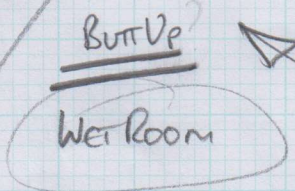 Butt Up
Wet Room